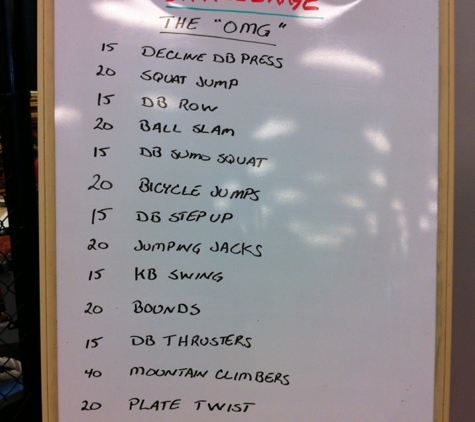 CHALLENGE
THE "OMG"
15 DECLINE DB PRESS
20 SQUAT JUMP
15 DB ROW
20 BALL SLAM
15 DB SUMO SQUAT
20 BICYCLE JUMPS
15 DB STEP UP
20 JUMPING JACKS
15 KB SWING
20 BOUNDS
15 DB THRUSTERS
40 MOUNTAIN CLIMBERS
20 PLATE TWIST